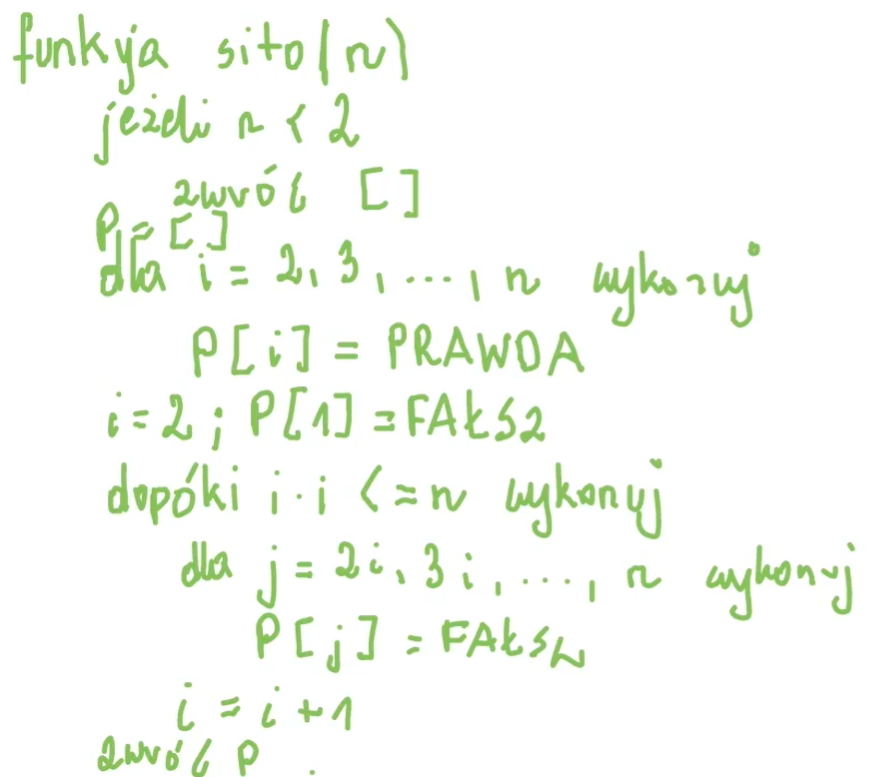 funkja sito(n)
jeżeli n < 2
zwróć []
P = []
dla i = 2, 3, ..., n wykonuj
P[i] = PRAWDA
i = 2; P[1] = FAŁSZ
dopóki i · i <= n wykonuj
dla j = 2i, 3i, ..., n wykonuj
P[j] = FAŁSZ
i = i + 1
zwróć P